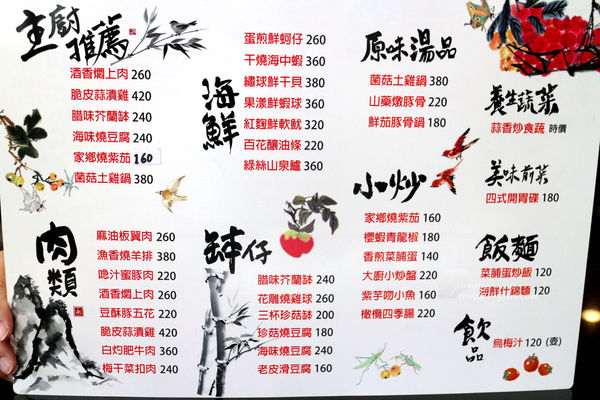 主廚推薦
酒香燜上肉 260
脆皮蒜漬雞 420
腊味芥蘭缽 240
海味燒豆腐 240
家鄉燒紫茄 160
菌菇土雞鍋 380
海鮮
蛋煎鮮蚵仔 260
干燒海中蝦 360
繡球鮮干貝 380
果漾鮮蝦球 360
紅麴鮮軟魷 320
百花釀油條 220
綠絲山泉鱸 360
原味湯品
菌菇土雞鍋 380
山藥燉豚骨 220
鮮茄豚骨鍋 180
養生蔬菜
蒜香炒食蔬 時價
美味前菜
四式開胃碟 180
肉類
麻油板翼肉 220
漁香燒羊排 380
嗆汁蜜豚肉 220
酒香燜上肉 260
豆酥豚五花 220
脆皮蒜漬雞 420
白灼肥牛肉 360
梅干菜扣肉 240
缽仔
腊味芥蘭缽 240
花雕燒雞球 260
三杯珍菇缽 200
珍菇燒豆腐 180
海味燒豆腐 240
老皮滑豆腐 160
小炒
家鄉燒紫茄 160
櫻蝦青龍椒 180
香煎菜脯蛋 140
大廚小炒盤 220
紫芋吻小魚 160
橄欖四季腿 220
飯麵
菜脯蛋炒飯 120
海鮮什錦麵 120
飲品
烏梅汁 120 (壺)